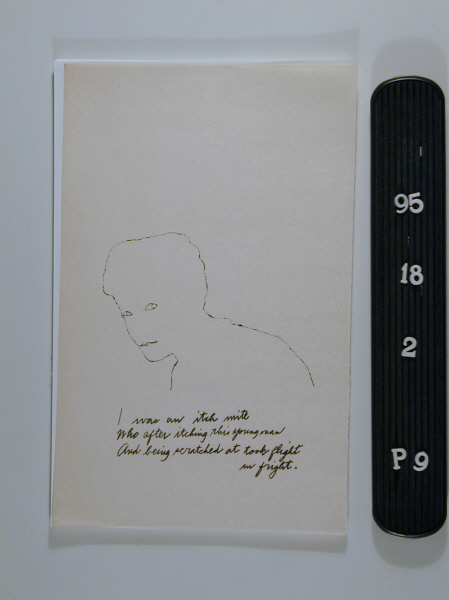 I was an itch mite
Who after itching this young man
And being scratched at took flight
in fright.
95
18
2
P 9